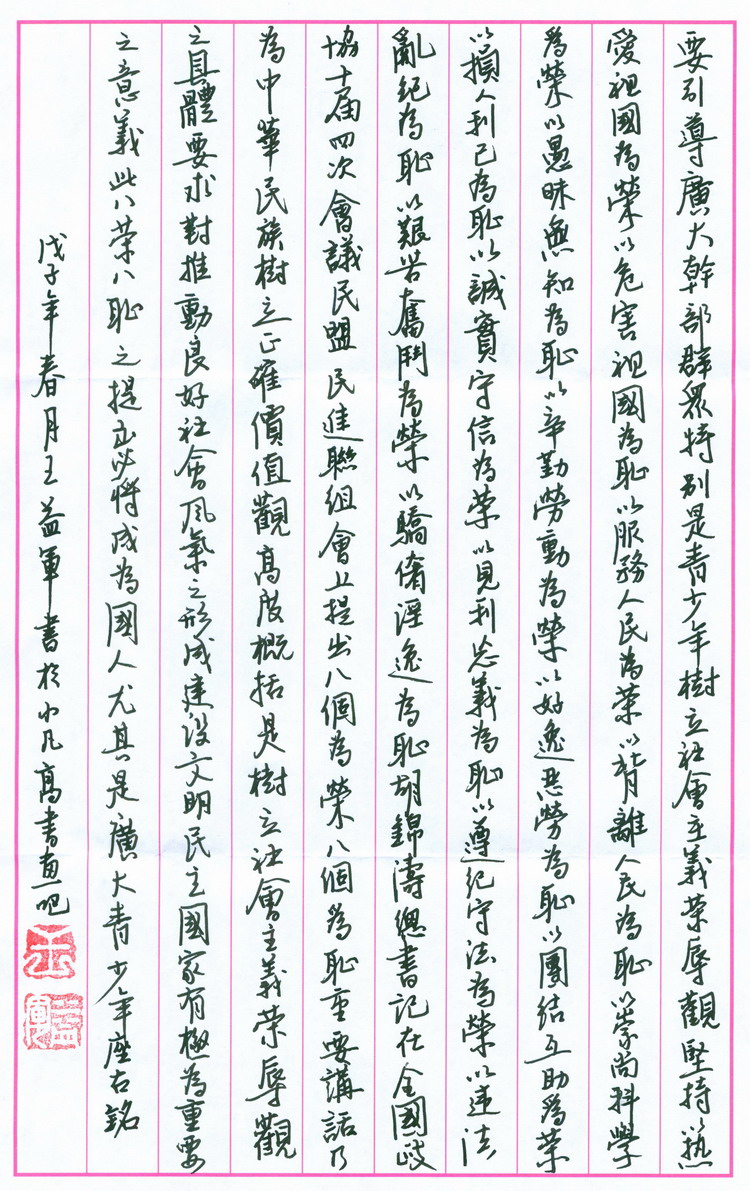 要引導廣大幹部群眾特別是青少年樹立社會主義荣辱觀堅持以热
愛祖國為榮以危害祖國為恥以服務人民為荣以背離人民為恥以崇尚科學
為榮以愚昧無知為恥以辛勤勞動為榮以好逸惡勞為恥以團结互助為荣
以損人利己為恥以誠實守信為荣以見利忘義為恥以遵纪守法為榮以違法
亂紀為恥以艱苦奮鬥為榮以驕奢淫逸為恥胡錦濤總書記在全國政
協十届四次會議民盟民進聯组會上提出八個為榮八個為恥重要講話乃
為中華民族樹立正確價值觀高度概括是樹立社會主義荣辱觀
之具體要求對推動良好社會風氣之形成建設文明民主國家有極為重要
之意義此八荣八恥之提出必將成為國人尤其是廣大青少年座右銘
戊子年春月王益軍書於小凡高書畫吧
王
益軍